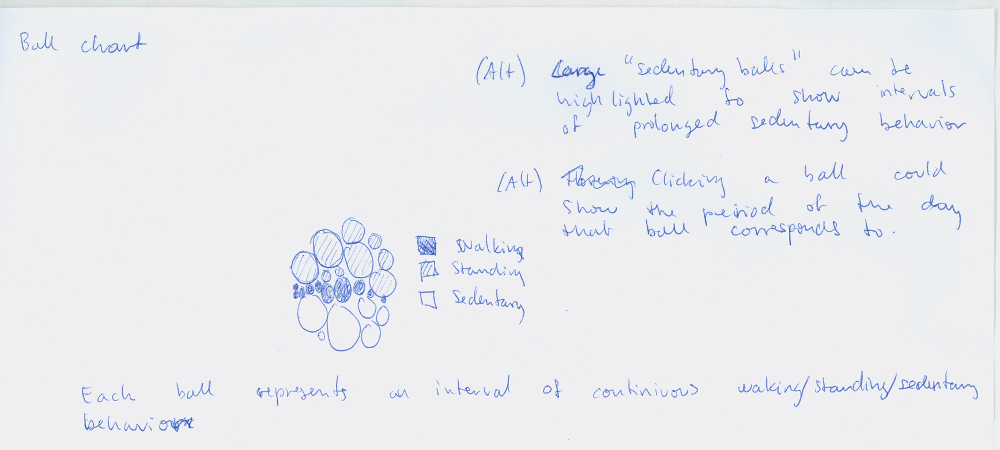 Ball chart
(Alt) Large "sedentary balls" can be
highlighted to show intervals
of prolonged sedentary behavior
(Alt) Clicking a ball could
show the period of the day
that ball corresponds to.
Walking
Standing
Sedentary
Each ball represents an interval of continivous waking/standing/sedentary
behavior